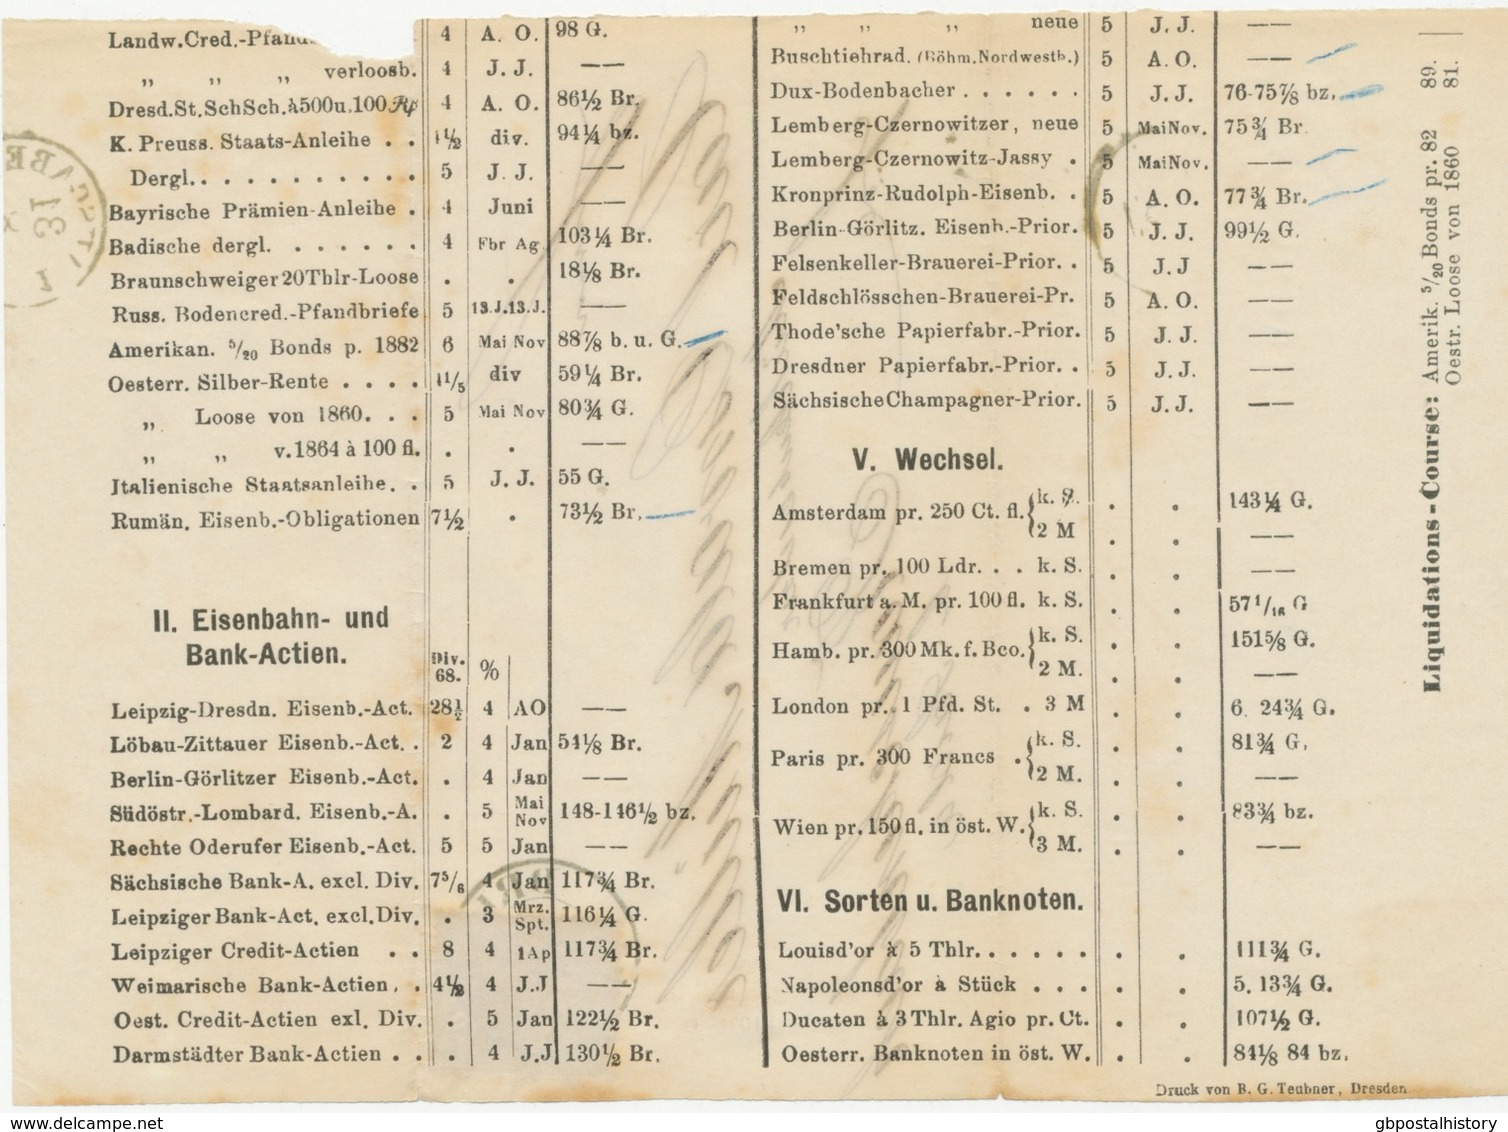 Landw.Cred.-Pfand 4 A. O. 98 G.
„ „ „ verloosb. 4 J. J. — —
Dresd.St.SchSch.à500u.100 Rℳ 4 A. O. 86½ Br.
K. Preuss. Staats-Anleihe . . 4½ div. 94¼ bz.
Dergl. . . . . . . . . . . 5 J. J. — —
Bayrische Prämien-Anleihe . 4 Juni
Badische dergl. . . . . . . 4 Fbr Ag 103¼ Br.
Braunschweiger 20Thlr-Loose . . 18⅛ Br.
Russ. Bodencred.-Pfandbriefe 5 13.J.13.J. — —
Amerikan. 5/20 Bonds p. 1882 6 Mai Nov 88⅞ b. u. G.
Oesterr. Silber-Rente . . . . 4 1/5 div 59¼ Br.
„ Loose von 1860. . . 5 Mai Nov 80¾ G.
„ „ v.1864 à 100 fl. . . — —
Italienische Staatsanleihe. . 5 J. J. 55 G.
Rumän. Eisenb.-Obligationen 7½ . 73½ Br.
II. Eisenbahn- und
Bank-Actien.
Div. 68. %
Leipzig-Dresdn. Eisenb.-Act. 28½ 4 AO — —
Löbau-Zittauer Eisenb.-Act. . 2 4 Jan 51⅛ Br.
Berlin-Görlitzer Eisenb.-Act. . 4 Jan — —
Südöstr.-Lombard. Eisenb.-A. . 5 Mai Nov 148-146½ bz.
Rechte Oderufer Eisenb.-Act. 5 5 Jan — —
Sächsische Bank-A. excl. Div. 7 5/6 4 Jan 117¾ Br.
Leipziger Bank-Act. excl. Div. . 3 Mrz. Spt. 116¼ G.
Leipziger Credit-Actien . . 8 4 1Ap 117¾ Br.
Weimarische Bank-Actien. . 4½ 4 J.J — —
Oest. Credit-Actien exl. Div. . 5 Jan 122½ Br.
Darmstädter Bank-Actien . . . 4 J.J 130½ Br.
„ „ „ neue 5 J. J. — —
Buschtiehrad. (Böhm.Nordwestb.) 5 A. O. — —
Dux-Bodenbacher . . . . . . 5 J. J. 76-75⅞ bz.
Lemberg-Czernowitzer, neue 5 MaiNov. 75¾ Br
Lemberg-Czernowitz-Jassy . 5 MaiNov. — —
Kronprinz-Rudolph-Eisenb. . 5 A. O. 77¾ Br.
Berlin-Görlitz. Eisenb.-Prior. 5 J. J. 99½ G.
Felsenkeller-Brauerei-Prior. . 5 J. J — —
Feldschlösschen-Brauerei-Pr. 5 A. O. — —
Thode'sche Papierfabr.-Prior. 5 J. J. — —
Dresdner Papierfabr.-Prior. . 5 J. J. — —
Sächsische Champagner-Prior. 5 J. J. — —
V. Wechsel.
Amsterdam pr. 250 Ct. fl. { k. S. . . 143¼ G.
2 M . . — —
Bremen pr. 100 Ldr. . . k. S. . . — —
Frankfurt a. M. pr. 100 fl. k. S. . . 57 1/16 G
Hamb. pr. 300 Mk. f. Bco. { k. S. . . 151⅝ G.
2 M. . . — —
London pr. 1 Pfd. St. . 3 M . . 6. 24¾ G.
Paris pr. 300 Francs . { k. S. . . 81¾ G.
2 M. . . — —
Wien pr. 150 fl. in öst. W. { k. S. . . 83¾ bz.
3 M. . . — —
VI. Sorten u. Banknoten.
Louisd'or à 5 Thlr. . . . . . . . 111¾ G.
Napoleonsd'or à Stück . . . . . . 5. 13¾ G.
Ducaten à 3 Thlr. Agio pr. Ct. . . 107½ G.
Oesterr. Banknoten in öst. W. . . 84⅛ 84 bz.
Druck von B. G. Teubner, Dresden
Liquidations-Course: Amerik. 5/20 Bonds pr. 82 89.
Oestr. Loose von 1860 81.
31
delcampe.net
gbpostalhistory